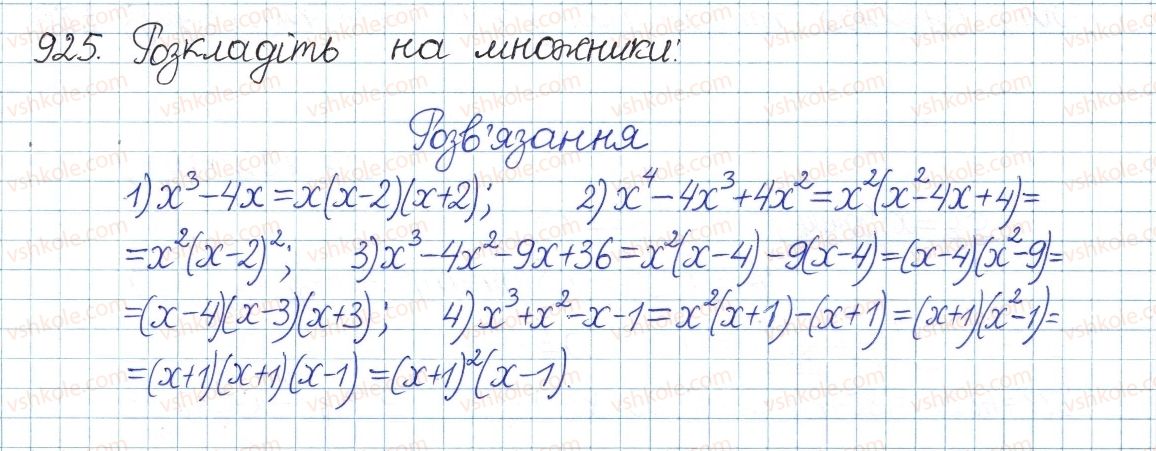 925. Розкладіть на множники:
Розв'язання
1) x³ - 4x = x(x-2)(x+2); 2) x⁴ - 4x³ + 4x² = x²(x² - 4x + 4) =
= x²(x-2)²; 3) x³ - 4x² - 9x + 36 = x²(x-4) - 9(x-4) = (x-4)(x²-9) =
= (x-4)(x-3)(x+3); 4) x³ + x² - x - 1 = x²(x+1) - (x+1) = (x+1)(x²-1) =
= (x+1)(x+1)(x-1) = (x+1)²(x-1).